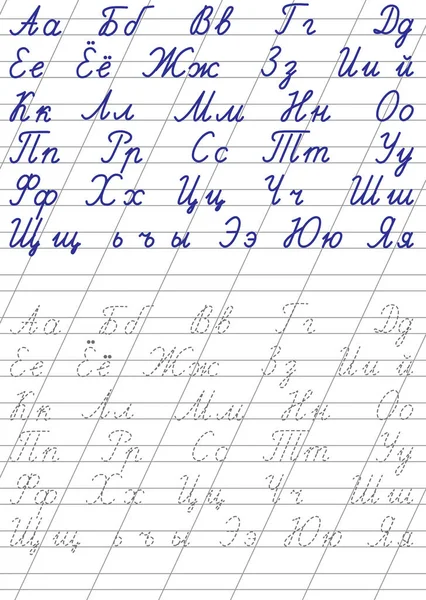 Аа Бб Вв Гг Дд
Ее Ёё Жж Зз Ии й
Кк Лл Мм Нн Оо
Пп Рр Сс Тт Уу
Фф Хх Цц Чч Шш
Щщ ь ъ ы Ээ Юю Яя
Аа Бб Вв Гг Дд
Ее Ёё Жж Зз Ии й
Кк Лл Мм Нн Оо
Пп Рр Сс Тт Уу
Фф Хх Цц Чч Шш
Щщ ь ъ ы Ээ Юю Яя